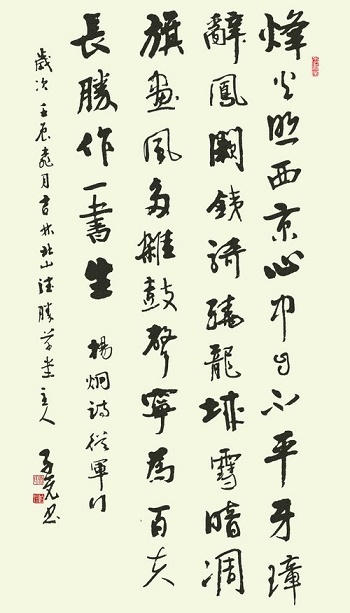 烽火照西京心中自不平牙璋
辭鳳闕銕騎繞龍城雪暗凋
旗畫風多雜鼓聲寧為百夫
長勝作一書生 楊炯詩從軍行
歲次壬辰月吉林北山勝草堂主人